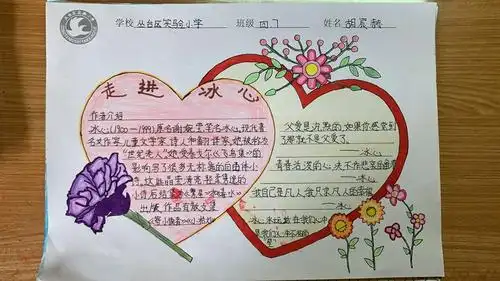 学校 丛台区实验小学 班级 四7 姓名 胡宸赫
走进冰心
作者介绍
冰心(1900—1999)原名谢婉莹,笔名冰心,现代著
名文作家,儿童文学家,诗人和翻译家,她被称为
"世纪老人"她受泰戈尔《飞鸟集》的
影响写了很多无标题的自由体小
诗,这些晶莹清亮,轻柔隽逸的
小诗后结集为《繁星》和《春水》
出版,作品有散文集
《寄小读者》
父爱是沉默的,如果你感觉到
了那就不是父爱了
——冰心
青春活泼的心,决不作悲哀的
——冰心
我自己是凡人,我只求凡人的幸福
——冰心
冰心永远